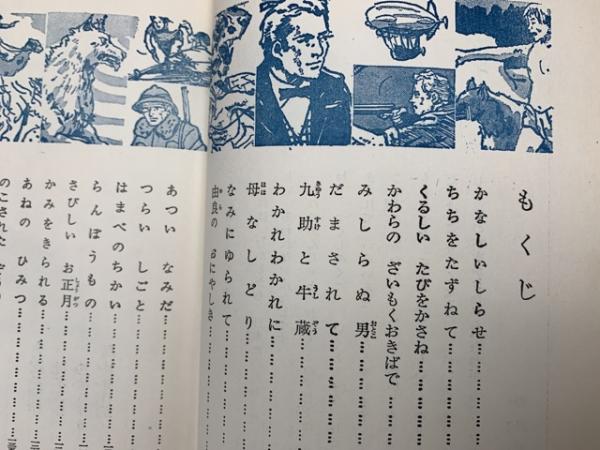 もくじ
かなしいしらせ
ちちをたずねて
くるしい たびをかさね
かわらの ざいもくおきばで
みしらぬ男
だまされて
九助と牛蔵
わかれわかれに
母なしどり
なみにゆられて
由良の おにやしき
あつい なみだ
つらい しごと
はまべのちかい
らんぼうもの
さびしい お正月
かみをきられる
あねの ひみつ
のこされた